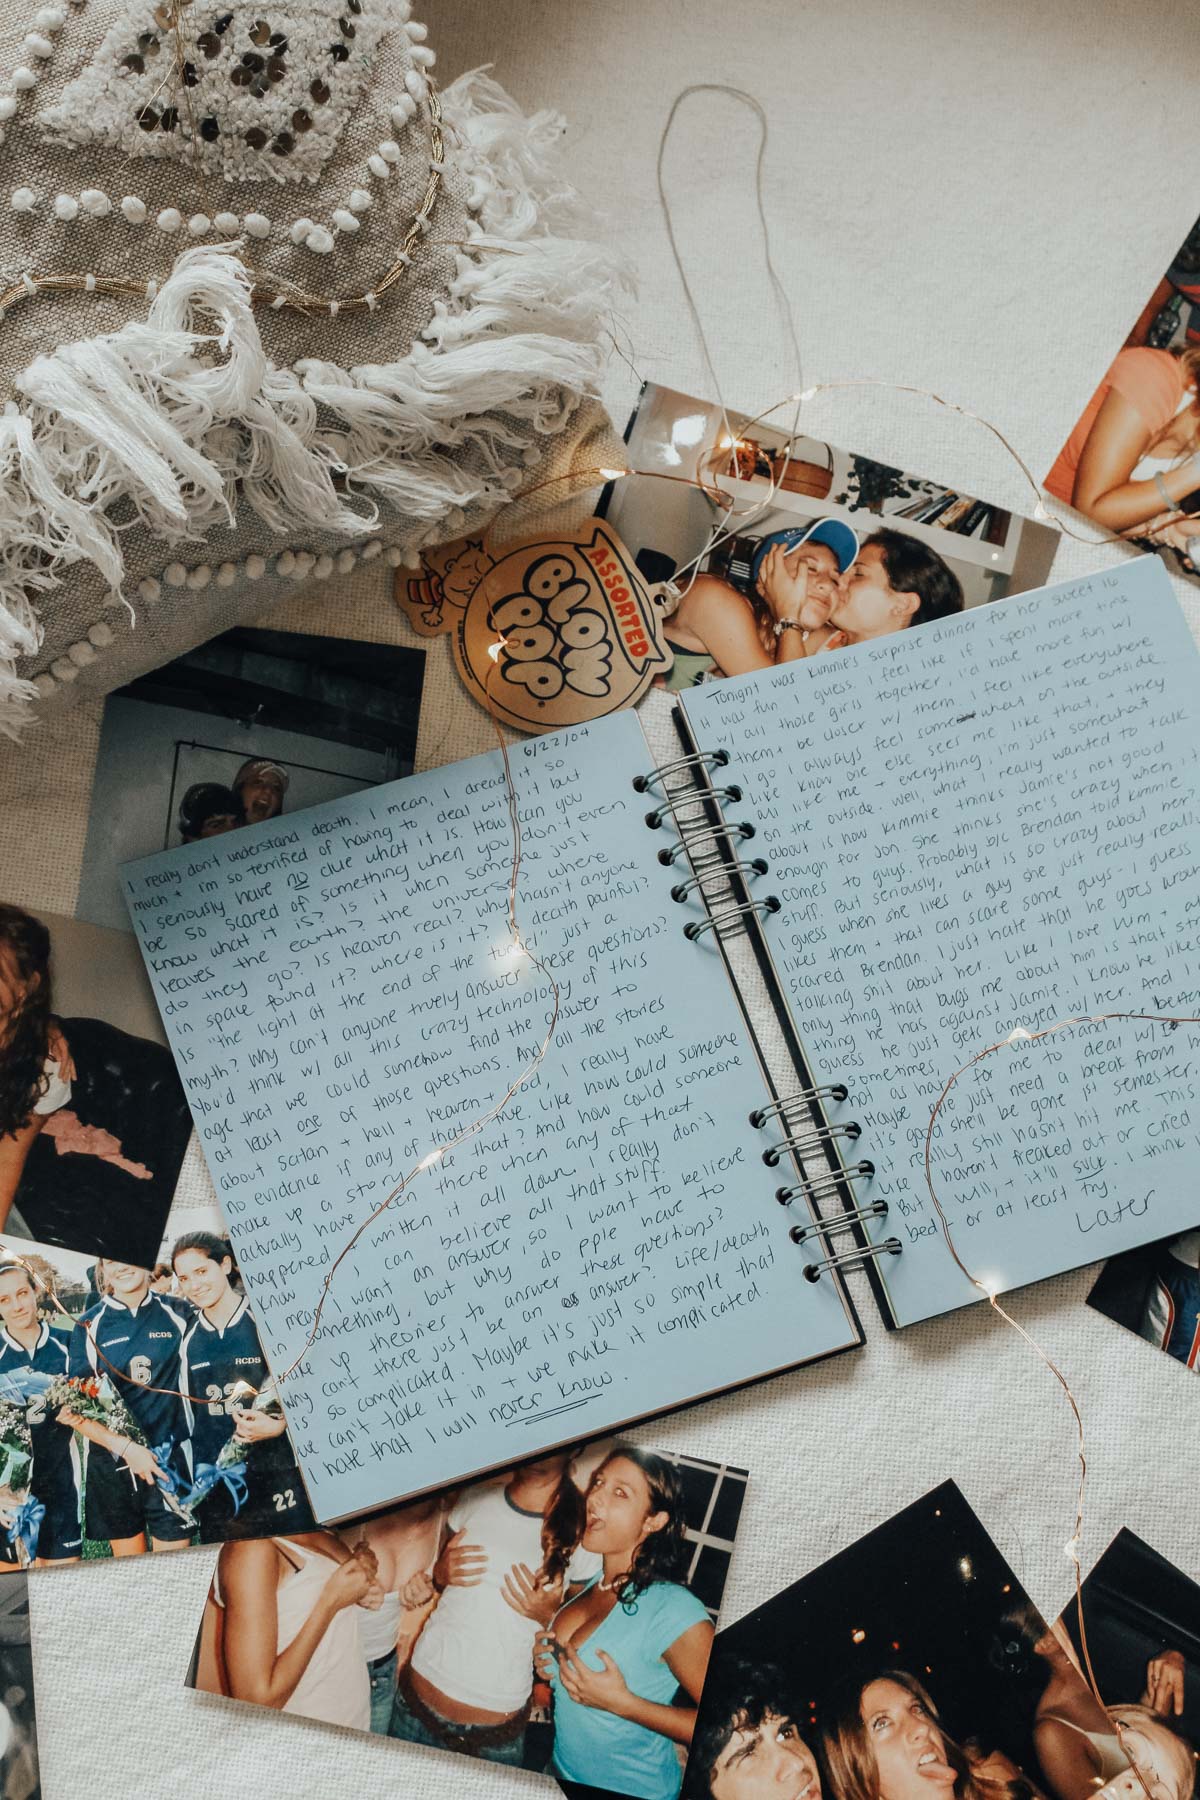 ASSORTED
BLOW
POP
6/22/04
I really don't understand death. I mean, I dread it so
much + I'm so terrified of having to deal with it but
I seriously have no clue what it is. How can you
be so scared of something when you don't even
know what it is? Is it when someone just
leaves the earth? the universe? where
do they go? Is heaven real? Why hasn't anyone
in space found it? where is it? Is death painful?
Is "the light at the end of the tunnel" just a
myth? Why can't anyone truely answer these questions?
You'd think w/ all this crazy technology of this
age that we could somehow find the answer to
at least one of those questions. And all the stories
about Satan + hell + heaven + God, I really have
no evidence if any of that is true. Like how could someone
make up a story like that? And how could someone
actually have been there when any of that
happened + written it all down. I really don't
know if I can believe all that stuff.
I mean I want an answer, so I want to believe
in something, but why do pple have to
make up theories to answer these questions?
Why can't there just be an answer? Life/death
is so complicated. Maybe it's just so simple that
we can't take it in + we make it complicated.
I hate that I will never know.
Tonight was Kimmie's surprise dinner for her sweet 16
It was fun I guess. I feel like if I spent more time
w/ all those girls together, I'd have more fun w/
them + be closer w/ them. I feel like everywhere
I go I always feel somewhat on the outside.
Like know one else sees me like that, + they
all like me + everything, I'm just somewhat
on the outside. Well, what I really wanted to talk
about is how Kimmie thinks Jamie's not good
enough for Jon. She thinks she's crazy when it
comes to guys. Probably b/c Brendan told Kimmie
stuff. But seriously, what is so crazy about her?
I guess when she likes a guy she just really really
likes them + that can scare some guys - I guess
scared Brendan. I just hate that he goes
talking shit about her. Like I love him +
only thing that bugs me about him is that
thing he has against Jamie. I know he
guess he just gets annoyed w/ her. And I
sometimes, I just understand her better
not as hard for me to deal w/
Maybe just need a break from
it's good she'll be gone 1st semester.
it really still hasn't hit me. This
like haven't freaked out or cried
But will, + it'll suck. I think
bed - or at least try.
Later
RCDS
6
RCDS
22
2
22